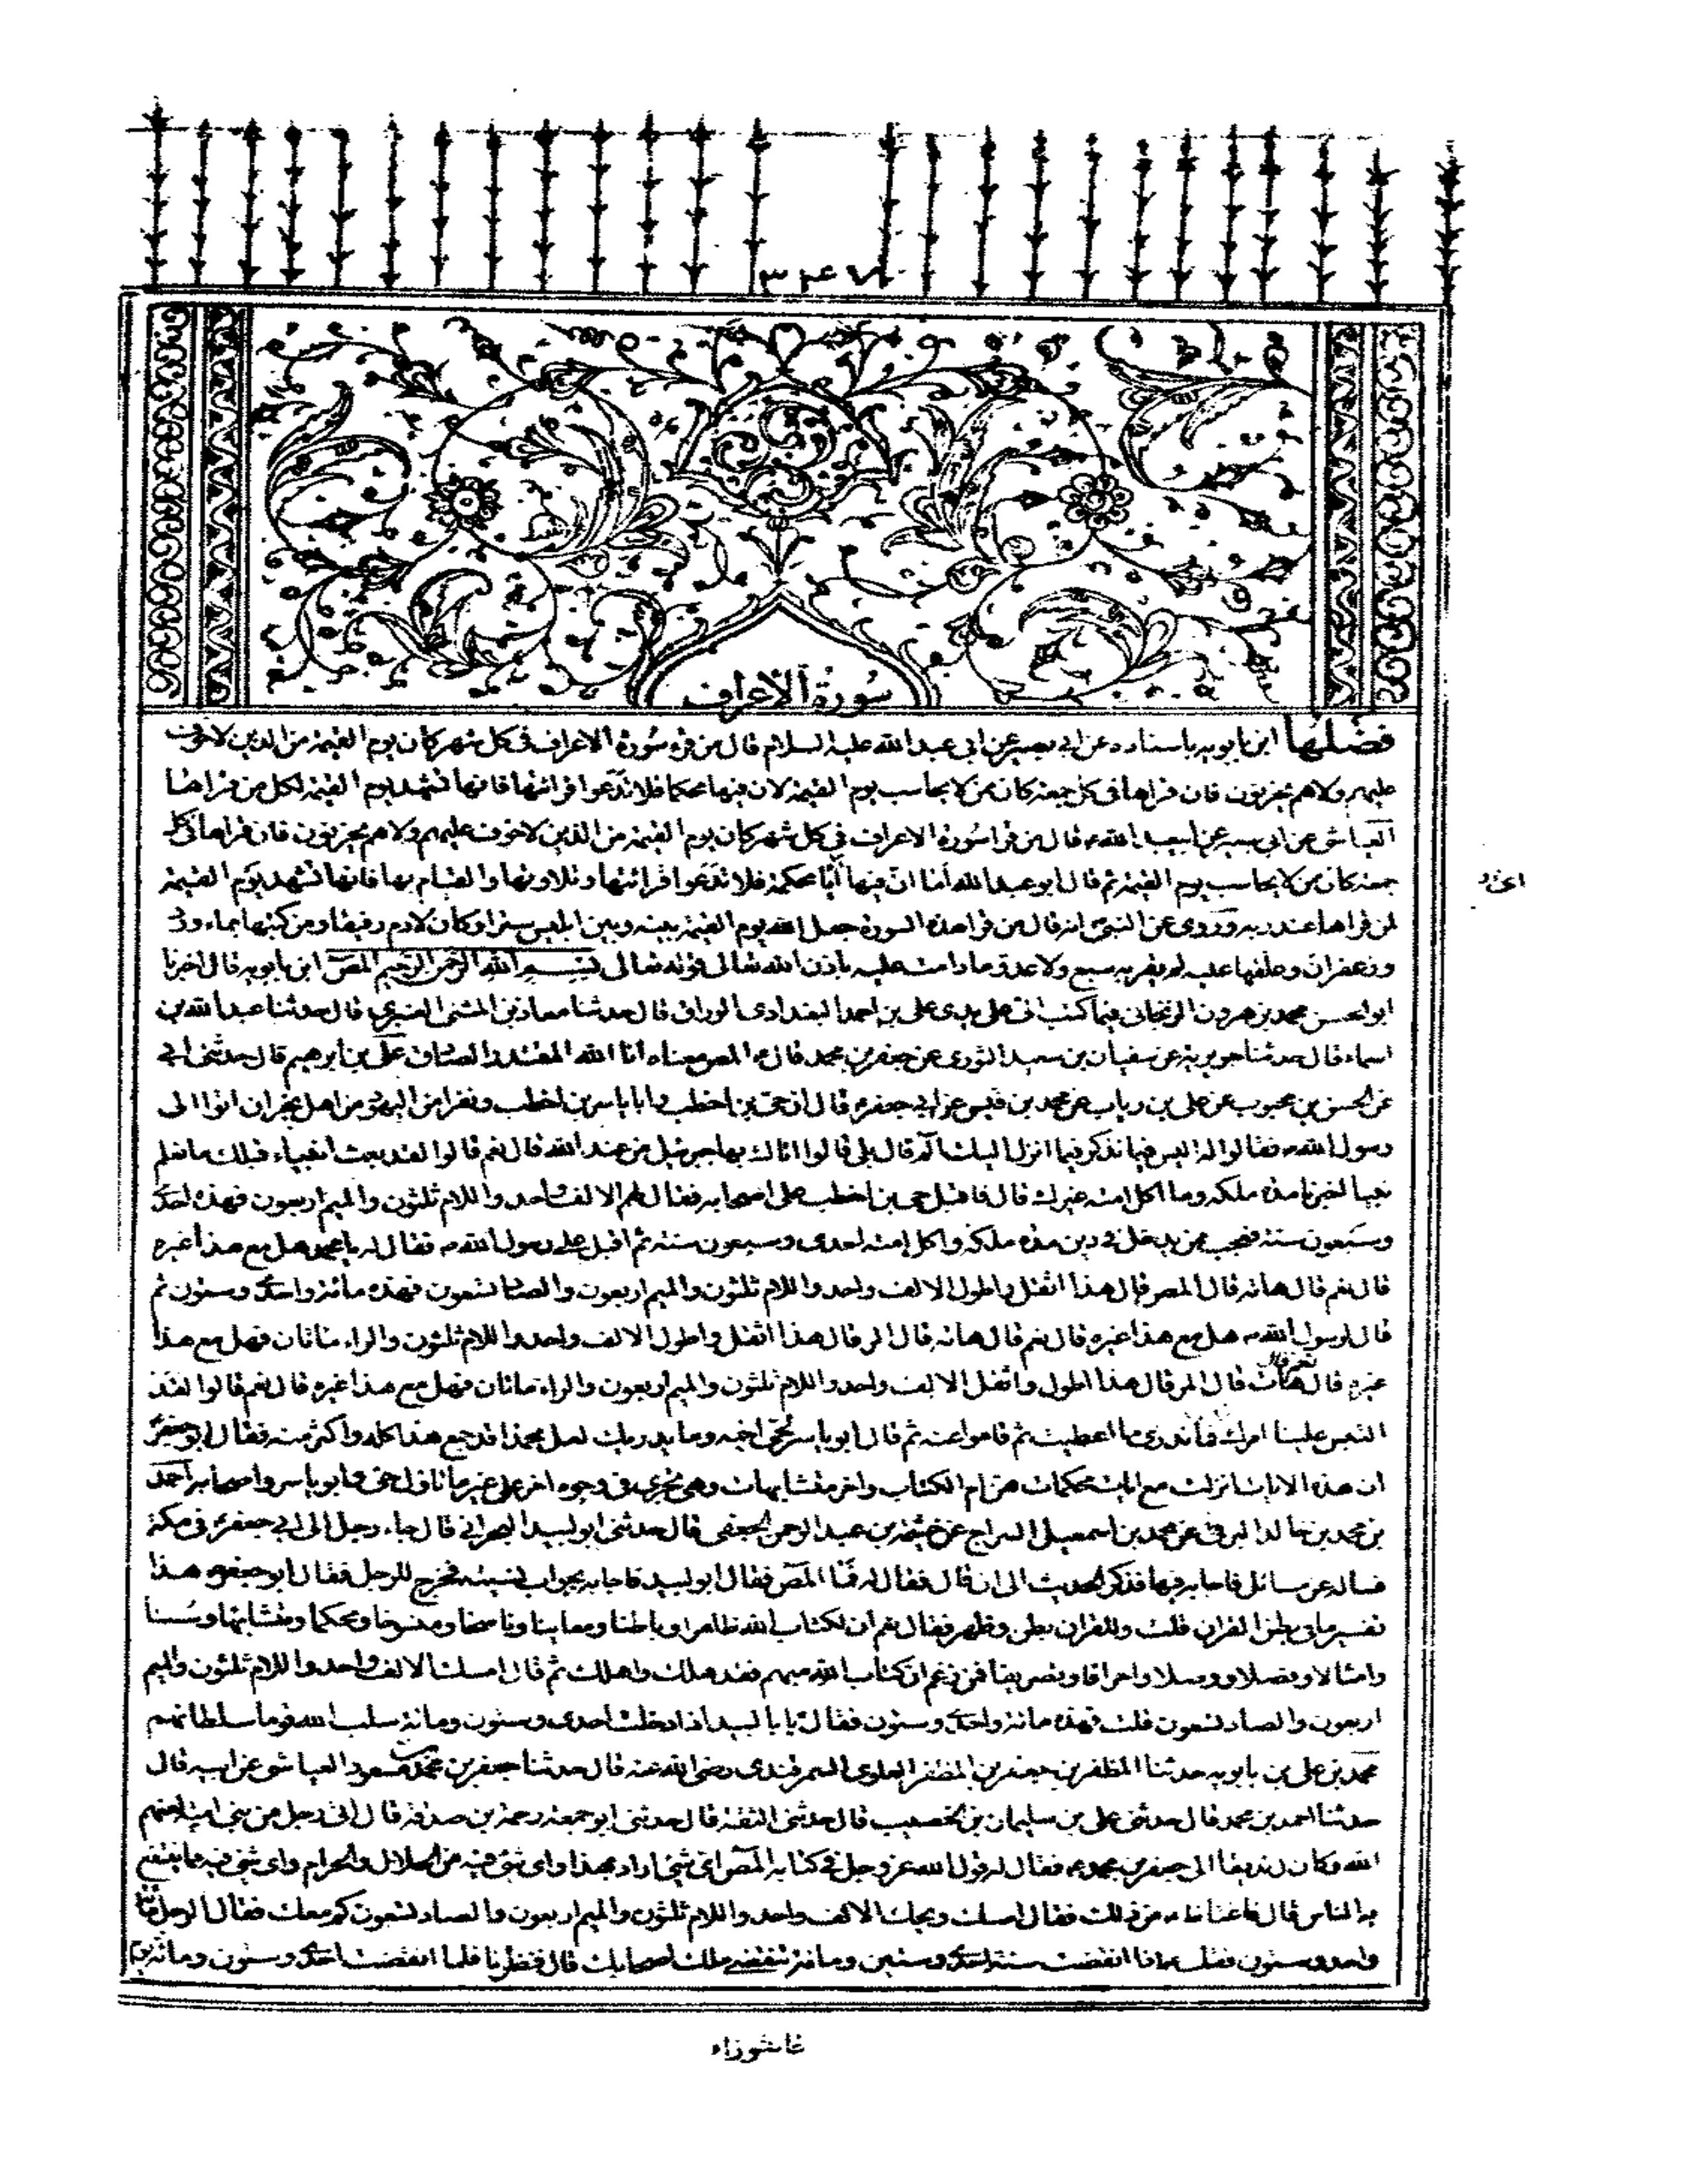 ٣٤٧
سورة الاعراف
فضلها ابن بابويه باسناده عن ابى بصير عن ابى عبد الله عليه السلام قال من قرء سورة الاعراف فى كل شهر كان يوم القيمة من الذين لا خوف
عليهم ولا هم يحزنون فان قراها فى كل جمعة كان ممن لا يحاسب يوم القيمة لان فيها محكما فلا تدعوا قرائتها فانها تشهد يوم القيمة لكل من قراها
العياشى عن ابى بصير عن ابيعبد الله ع قال من قرا سورة الاعراف فى كل شهر كان يوم القيمة من الذين لا خوف عليهم ولا هم يحزنون فان قراها فى كل
جمعة كان ممن لا يحاسب يوم القيمة ثم قال ابو عبد الله اما ان فيها آيا محكمة فلا تدعوا قرائتها وتلاوتها والقيام بها فانها تشهد يوم القيمة
لمن قراها عند ربه وروى عن النبى انه قال من قرا هذه السورة جعل الله يوم القيمة بينه وبين ابليس سترا وكان لادم رفيقا ومن كتبها بماء ورد
وزعفران وعلقها عليه لم يقربه سبع ولا عدو ما دامت عليه باذن الله تعالى قوله تعالى بسم الله الرحمن الرحيم المص ابن بابويه قال اخبرنا
ابو الحسن محمد بن هرون الزنجانى فيما كتب الى على يدى على بن احمد البغدادى الوراق قال حدثنا معاذ بن المثنى العنبرى قال حدثنا عبد الله بن
اسماء قال حدثنا جويرية عن سفيان بن سعيد الثورى عن جعفر بن محمد قال ع المص معناه انا الله المقتدر الصادق على بن ابرهيم قال حدثنى ابى
عن الحسن بن محبوب عن على بن رياب عن محمد بن قيس عن ابى جعفر ع قال ان حى بن اخطب وابا ياسر بن اخطب ونفرا من اليهود من اهل نجران اتوا الى
رسول الله ص فقالوا له اليس فيما تذكر فيما انزل اليك الم قال بلى قالوا اتاك بها جبرئيل من عند الله قال نعم قالوا لقد بعث انبياء قبلك ما نعلم
نبيا اخبرنا مدة ملكه وما اكل امته غيرك قال فاقبل حى بن اخطب على اصحابه فقال لهم الالف واحد واللام ثلثون والميم اربعون فهذه احد
وسبعون سنة فعجب ممن يدخل فى دين مدة ملكه واكل امته احدى وسبعون سنة ثم اقبل على رسول الله ص فقال له يا محمد هل مع هذا غيره
قال نعم قال هاته قال المص قال هذا اثقل واطول الالف واحد واللام ثلثون والميم اربعون والصاد تسعون فهذه مائة واحدى وستون ثم
قال لرسول الله ص هل مع هذا غيره قال نعم قال هاته قال الر قال هذا اثقل واطول الالف واحد واللام ثلثون والراء مأتان فهل مع هذا
غيره قال نعم قال هات قال المر قال هذا اطول واثقل الالف واحد واللام ثلثون والميم اربعون والراء مائتان فهل مع هذا غيره قال نعم قالوا لقد
التبس علينا امرك فما ندرى ما اعطيت ثم قاموا عنه ثم قال ابو ياسر لحى اخيه وما يدريك لعل محمدا قد جمع هذا كله واكثر منه فقال ابو جعفر
ان هذه الايات انزلت مع ايات محكمات هن ام الكتاب واخر متشابهات وهى تجرى فى وجوه اخر على غير ما تاول حى وابو ياسر واصحابه احمد
بن محمد بن خالد البرقى عن محمد بن اسمعيل السراج عن خيثمة بن عبد الرحمن الجعفى قال حدثنى ابو لبيد البحرانى قال جاء رجل الى ابى جعفر ع فى مكة
فساله عن مسائل فاجابه فيها فذكر الحديث الى ان قال فقال له فما المص فقال ابو لبيد فاجابه بجواب نسيته فخرج الرجل فقال ابو جعفر ع هذا
تفسيرها فى بطن القران قلت وللقران بطن وظهر فقال نعم ان لكتاب الله ظاهرا وباطنا ومعاينا وناسخا ومنسوخا ومحكما ومتشابها وسننا
وامثالا وفصلا ووصلا واحرافا وتصريفا فمن زعم ان كتاب الله مبهم فقد هلك واهلك ثم قال امسك الالف واحد واللام ثلثون والميم
اربعون والصاد تسعون قلت فهذه مائة واحدى وستون فقال يا با لبيد اذا دخلت احدى وستون ومائة سلب الله قوما سلطانهم
محمد بن على بن بابويه حدثنا المظفر بن جعفر بن المظفر العلوى السمرقندى رضى الله عنه قال حدثنا جعفر بن محمد بن مسعود العياشى عن ابيه قال
حدثنا احمد بن محمد قال حدثنى على بن سليمان بن الخصيب قال حدثنى الثقة قال حدثنى ابو جمعة رحمة بن صدقة قال اتى رجل من بنى امية لعنهم
الله وكان زنديقا الى جعفر بن محمد ع فقال له قول الله عز وجل فى كتابه المص اى شئ اراد بهذا واى شئ فيه من الحلال والحرام واى شئ فيه ما ينتفع
به الناس قال فاغتاظ ع من ذلك فقال امسك ويحك الالف واحد واللام ثلثون والميم اربعون والصاد تسعون كم معك فقال الرجل مائة
واحد وستون فقال ع اذا انقضت سنة احدى وستين ومائة تنقضى ملك اصحابك قال فنظرنا فلما انقضت احدى وستون ومائة يوم
عاشوراء